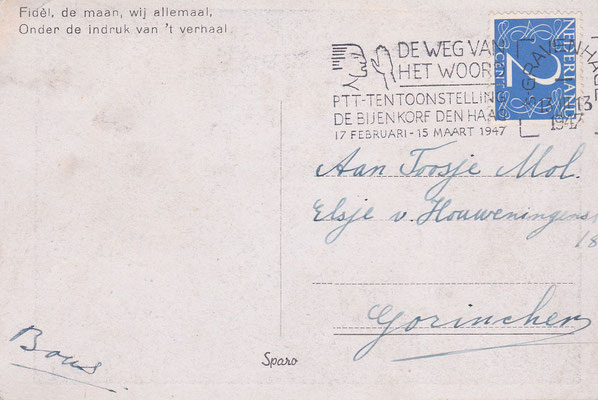 Fidèl, de maan, wij allemaal,
Onder de indruk van 't verhaal.
DE WEG VAN
HET WOOR
PTT-TENTOONSTELLING
DE BIJENKORF DEN HAA
17 FEBRUARI-15 MAART 1947
'S-GRAVENHAGE
13
1947
NEDERLAND
2
CENT
Aan Toosje Mol.
Elsje v. Houweningens
18
Gorinchem
Bous
Sparo